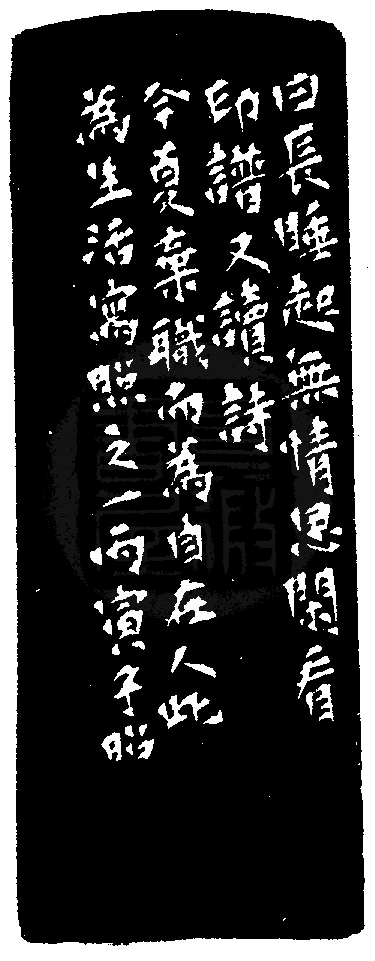 日長睡起無情思閑看
印譜又讀詩
今夏棄職而為自在人此
為生活寫照之一丙寅子昭